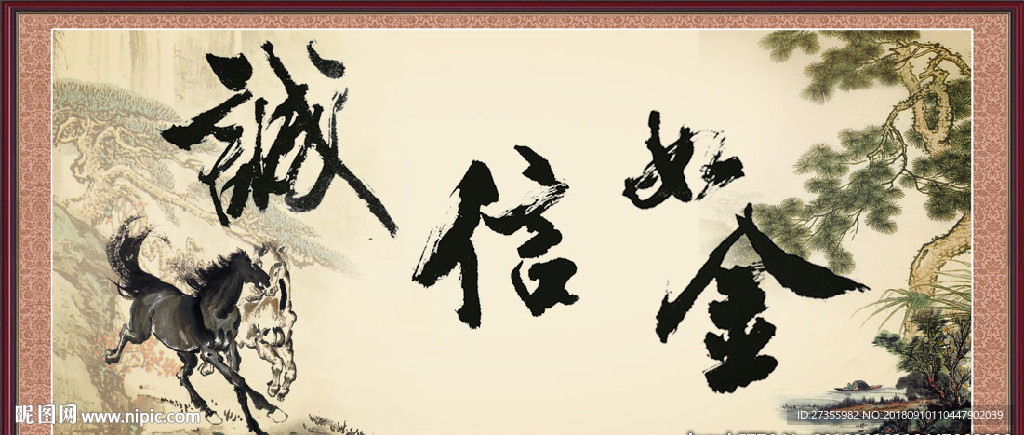 誠信如金
昵图网 www.nipic.com
ID:27355982 NO:20180910110447902039